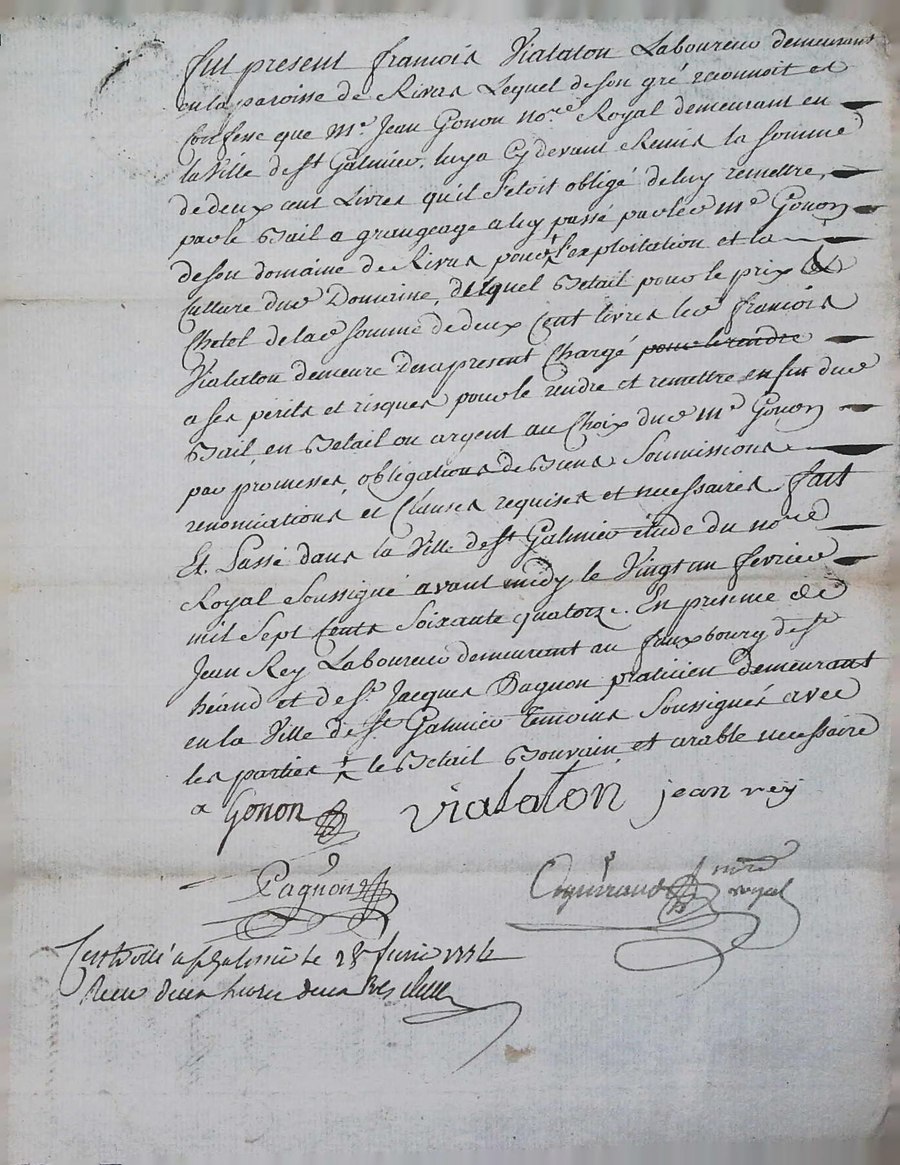 fut present francois Vialaton Laboureur demeurant
en la paroisse de Rivas Lequel de son gré reconnoit et
Confesse que Me. Jean Gonon nore. Royal demeurant en
la Ville de st Galmier, luy a Cy devant Remis la somme
de deux cent Livres qu'il s'etoit obligé de luy remettre,
par le Bail a grangeage a luy passé par led me Gonon
de son domaine de Rivas pour l'exploitation et la
Culture dud Domaine, duquel Betail pour le prix et
Chetel de lad somme de deux Cent livres led francois
Vialaton demeure Dempresent Chargé pour le rendre
a ses périls et risques pour le rendre et remettre en fin dud
Bail, en Betail ou argent au Choix dud me Gonon
par promesses, obligations de Biens Soumissions
renonciations et Clauses requises et necessaires fait
Et Passé dans la Ville de st Galmier étude du nore
Royal soussigné avant midy le Vingt un fevrier
mil Sept Cents Soixante quatorze. En presence de
Jean Rey Laboureur demeurant au fauxbourg de st
héand et de sr. Jacques Pagnon praticien demeurant
en la Ville de st. Galmier temoins soussignés avec
les parties le Betail Bouvain, et arable necessaire
a Gonon Vialaton jean rey
Pagnon nore royal
Controllé a st Galmier le 28 fevrier 1774
Recu